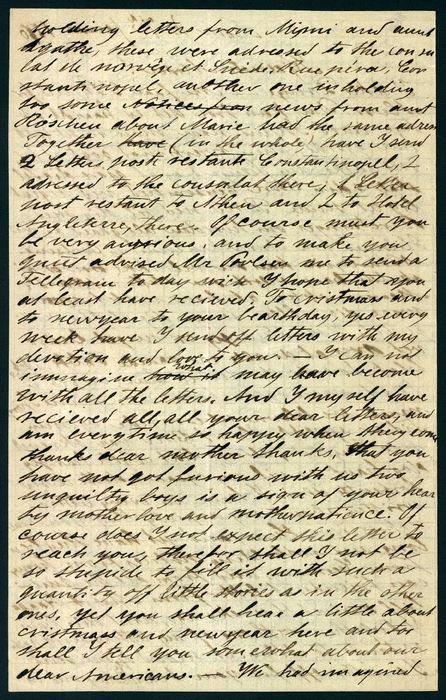 holding letters from Mimi and aunt
Agathe, these were adressed to the consu
lat de norvég et Suéde, Rue péra, Con
stantinopel, another one inholding
too some notices from news from aunt
Röschen about Marie had the same adress
Together have (in the whole) have I send
2 Letters post restante Constantinopel, 2
adressed to the consulat there, 1 Letter
post restant to Athen and 2 to Hotel
Angleterre, there. Of course must you
be very anxious, and to make you
quiet advised Mr Poulsen me to send a
Tellegram to day wich I hope that you
at least have recieved. To cristmas and
to newyear to your bearthday, yes every
week have I send off letters with my
devotion and love to you. — I can not
immagine how it what may have become
with all the letters. And I myself have
recieved all, all your dear letters, and
am everytime so happy when they come
thanks dear mother thanks, that you
have not got furious with us two
unguilty boys is a sign of your hear
ty motherlove and motherpatience. Of
course does I not expect this letter to
reach you, therefor shall I not be
so stupide to fill it with such a
quantity off little stories as in the other
ones, yet you shall hear a little about
cristmass and newyear here and too
shall I tell you somewhat about our
dear Americans. — We had imagined